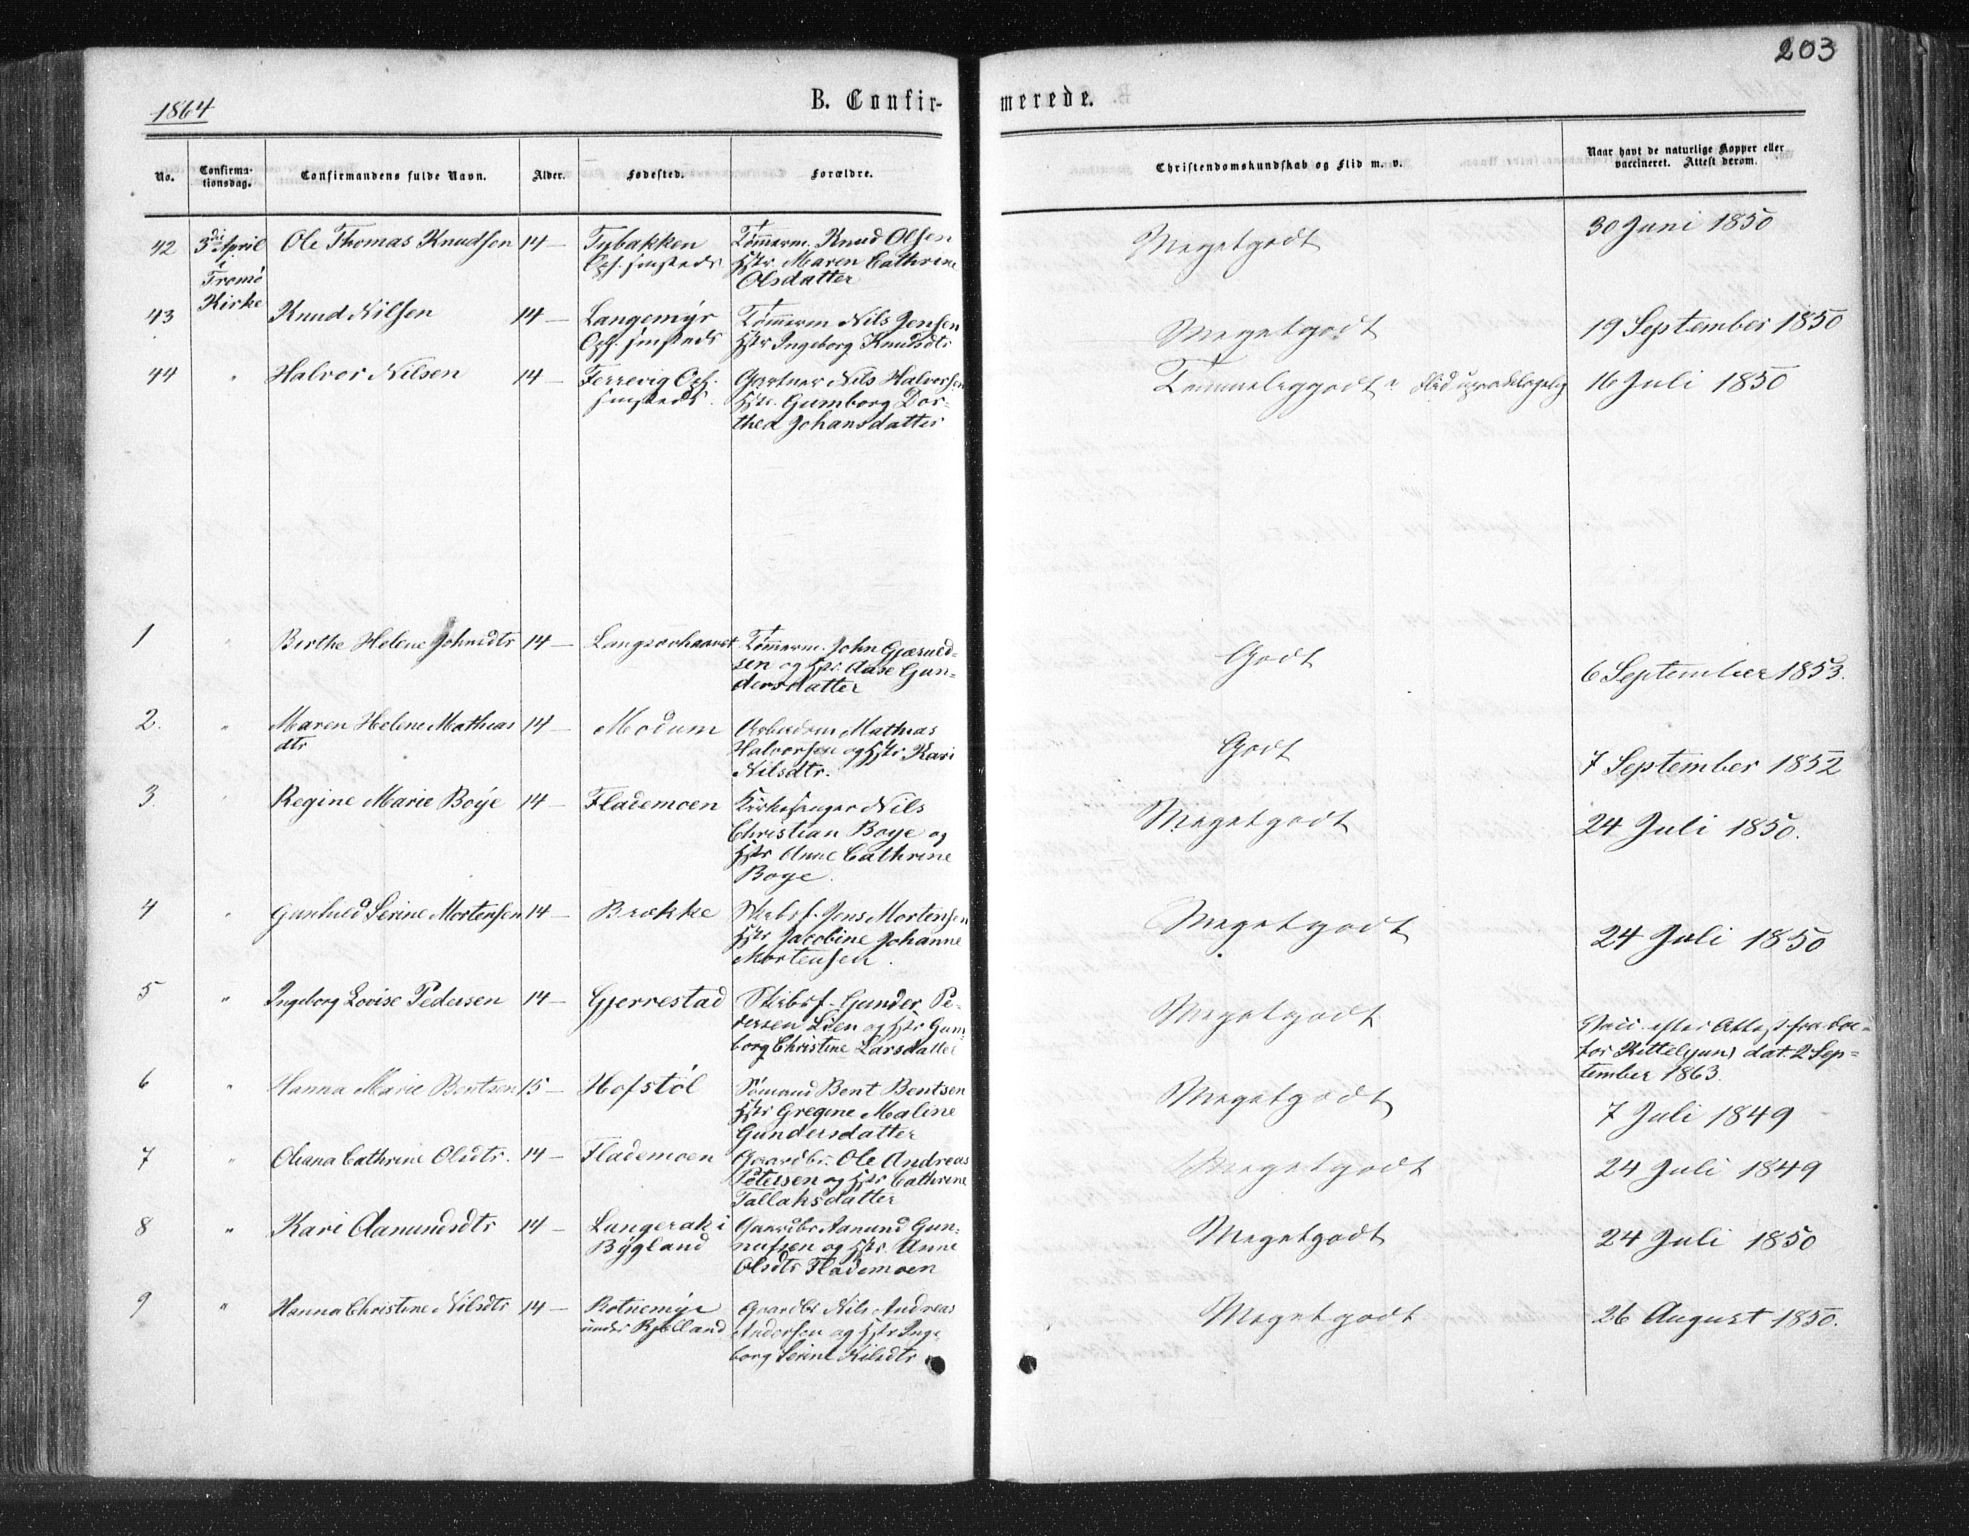 203
1864
B. Confirmerede.
No. Confirmationsdag. Confirmandens fulde Navn. Alder. Fødested. Forældre. Christendomskundskab og Flid m. v. Naar havt de naturlige Kopper eller vaccineret. Attest derom.
42 3die April i Tromø Kirke Ole Thomas Knudsen 14 — Tybakken Tømmerm. Knud Olsen Hstr. Maren Cathrine Olsdatter Megetgodt 30 Juni 1850
43 Knud Nilsen 14 — Langemyr Tømmerm Nils Jensen Hstr Ingeborg Knudsdtr Megetgodt 19 September 1850
44 " Halvor Nilsen 14 — Færrevig Gartner Nils Halvorsen Hstr. Gumborg Dorthea Johansdatter Temmeliggodt 16 Juli 1850
1 " Birthe Helene Johnsdtr 14 — Tømmerm. John Gjæruldsen og Hstr. Aase Gundersdatter Godt 6 September 1853.
2. " Maren Heline Mathiasdtr 14 — Modum Arbeidsm Mathias Halvorsen og Hstr Kari Nilsdtr. Godt 7 September 1852
3. " Regine Marie Boye 14 — Flademoen Kirkesanger Nils Christian Boye og Hstr Anne Cathrine Boye. Megetgodt 24 Juli 1850.
4 " Gunhild Serine Mortensen 14 — Brække Skibsf. Jens Mortensen Hstr Jacobine Johanne Mortensen. Megetgodt 24 Juli 1850
5 " Ingeborg Lovise Pedersen 14 — Gjerrestad Skibsf. Gunder Pedersen Lien og Hstr Gumborg Christine Larsdatter Megetgodt Vacc. efter Attest fra Doctor Kittelsen dat. 2 September 1863.
6 " Hanna Marie Bentsen 15 — Hofstøl Sømand Bent Bentsen Hstr Gregine Maline Gundersdatter Megetgodt 7 Juli 1849
7 " Oleana Cathrine Olsdtr. 14 — Flademoen Gaardbr. Ole Andreas Petersen og Hstr Cathrine Tallaksdatter Megetgodt 24 Juli 1849
8 " Kari Aamundsdtr 14 — Langerak i Bygland Gaardbr Aamund Gunnufsen og Hstr. Anne Olsdtr Flademoen Megetgodt 24 Juli 1850
9 " Hanna Christine Nilsdtr 14 — under Gaardbr Nils Andreas Andersen og Hstr Ingeborg Serine Nilsdtr Megetgodt 26 August 1850.